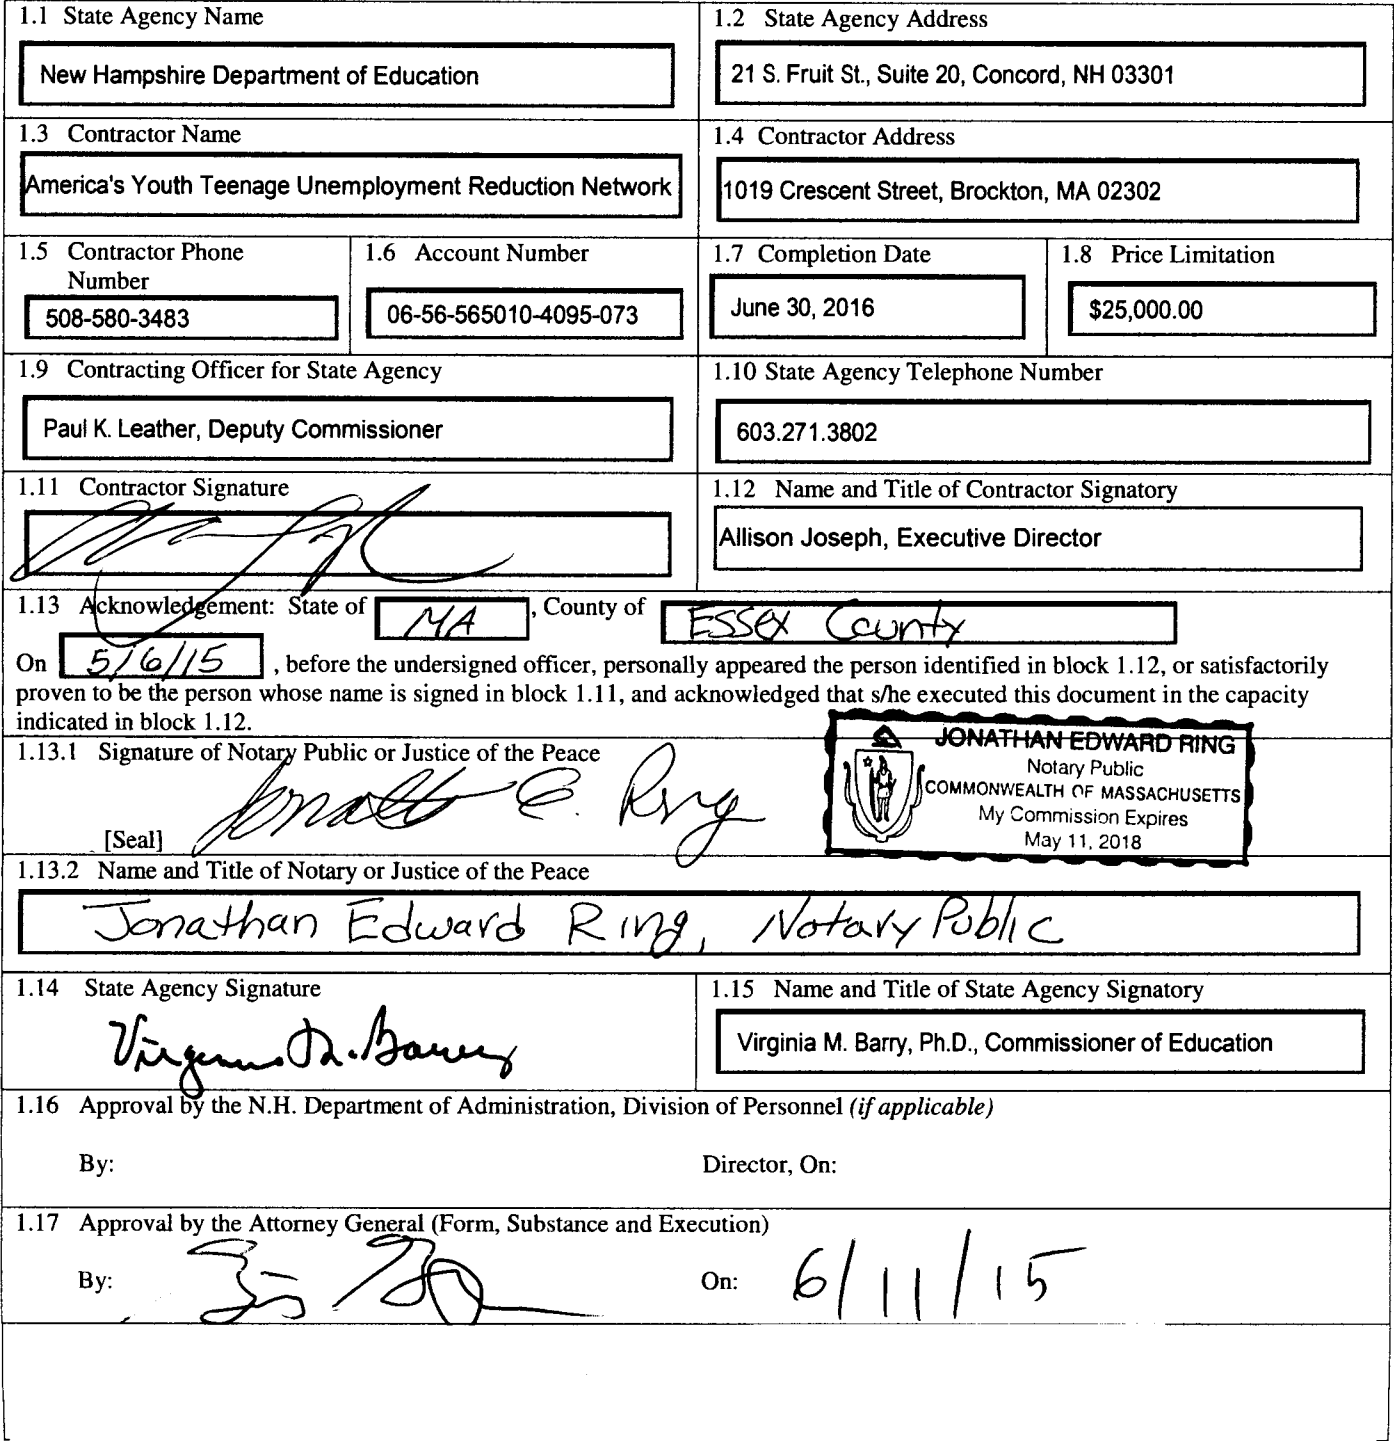 1.1 State Agency Name
New Hampshire Department of Education
1.2 State Agency Address
21 S. Fruit St., Suite 20, Concord, NH 03301
1.3 Contractor Name
America's Youth Teenage Unemployment Reduction Network
1.4 Contractor Address
1019 Crescent Street, Brockton, MA 02302
1.5 Contractor Phone
Number
508-580-3483
1.6 Account Number
06-56-565010-4095-073
1.7 Completion Date
June 30, 2016
1.8 Price Limitation
$25,000.00
1.9 Contracting Officer for State Agency
Paul K. Leather, Deputy Commissioner
1.10 State Agency Telephone Number
603.271.3802
1.11 Contractor Signature
1.12 Name and Title of Contractor Signatory
Allison Joseph, Executive Director
1.13 Acknowledgement: State of MA, County of Essex County
On 5/6/15, before the undersigned officer, personally appeared the person identified in block 1.12, or satisfactorily
proven to be the person whose name is signed in block 1.11, and acknowledged that s/he executed this document in the capacity
indicated in block 1.12.
1.13.1 Signature of Notary Public or Justice of the Peace
Jonathan E. Ring
[Seal]
JONATHAN EDWARD RING
Notary Public
COMMONWEALTH OF MASSACHUSETTS
My Commission Expires
May 11, 2018
1.13.2 Name and Title of Notary or Justice of the Peace
Jonathan Edward Ring, Notary Public
1.14 State Agency Signature
Virginia M. Barry
1.15 Name and Title of State Agency Signatory
Virginia M. Barry, Ph.D., Commissioner of Education
1.16 Approval by the N.H. Department of Administration, Division of Personnel (if applicable)
By:
Director, On:
1.17 Approval by the Attorney General (Form, Substance and Execution)
By:
On: 6/11/15